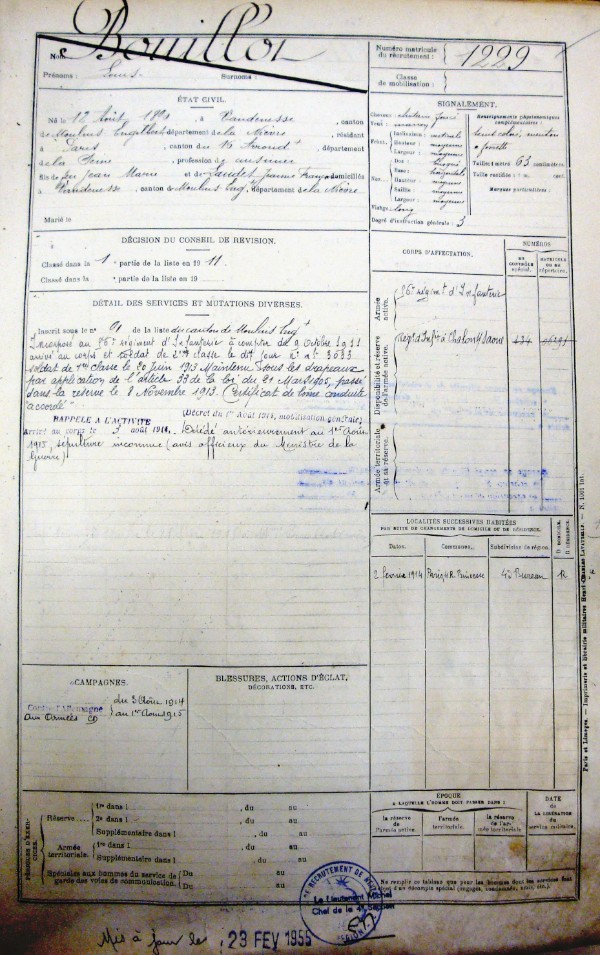 Bouillot
Nom :
Prénoms : Louis. Surnoms :
Numéro matricule du recrutement : 1229
Classe de mobilisation :
ÉTAT CIVIL.
Né le 12 Août 1890, à Vandenesse, canton
de Moulins Engilbert, département de la Nièvre, résidant
à Paris, canton du 16 Arrond t, département
de la Seine, profession de cuisinier
fils de feu Jean Marie et de Jeanne Franç domiciliés
à Vandenesse, canton de Moulins Eng t, département de la Nièvre.
Marié le
SIGNALEMENT.
Cheveux : châtain foncé
Yeux :
Front. Inclinaison : verticale
Hauteur : moyenne
Largeur : moyenne
Nez. Dos :
Base : horizontale
Hauteur : moyenne
Saillie : moyenne
Largeur : moyenne
Visage : long
Renseignements physionomiques complémentaires :
teint coloré, menton
à fossette
Taille : 1 mètre 63 centimètres.
Taille rectifiée : 1 m. cent.
Marques particulières :
Degré d'instruction générale : 3
DÉCISION DU CONSEIL DE REVISION.
Classé dans la 1e partie de la liste en 1911.
Classé dans la e partie de la liste en 19
DÉTAIL DES SERVICES ET MUTATIONS DIVERSES.
Inscrit sous le n° 91 de la liste du canton de Moulins Eng t
Incorporé au 56e régiment d'Infanterie à compter du 9 Octobre 1911
arrivé au corps et soldat de 2me classe le dit jour n° m le 3033
soldat de 1re classe le 20 Juin 1913 Maintenu sous les drapeaux
par application de l'article 33 de la loi du 21 Mars 1905, passé
dans la réserve le 8 Novembre 1913. "Certificat de bonne conduite
accordé"
RAPPELÉ A L'ACTIVITÉ (Décret du 1er Août 1914, mobilisation générale)
Arrivé au corps le 3 août 1914. Décédé antérieurement au 1er Août
1915, sépulture inconnue (avis officieux du Ministère de la
Guerre)
CORPS D'AFFECTATION.
NUMÉROS
AU CONTRÔLE SPÉCIAL.
MATRICULES OU AU RÉPERTOIRE.
Armée active.
56e régiment d'Infanterie
Disponibilité et réserve de l'armée active.
Régt d'Inf ie à Chalon s/ Saone
Armée territoriale et sa réserve.
LOCALITÉS SUCCESSIVES HABITÉES
PAR SUITE DE CHANGEMENTS DE DOMICILE OU DE RÉSIDENCE.
Dates. Communes. Subdivision de région. D DOMICILE. R RÉSIDENCE.
2 février 1914 Paris 4 R. Princesse 4e Bureau R
CAMPAGNES.
Contre l'Allemagne
Aux Armées CD
du 3 Août 1914
au 1er Août 1915
BLESSURES, ACTIONS D'ÉCLAT,
DÉCORATIONS, ETC.
PÉRIODES D'EXERCICES.
Réserve
1re dans l , du au
2e dans l , du au
Supplémentaire dans l , du au
Armée territoriale.
1re dans l , du au
Supplémentaire dans l , du au
Spéciales aux hommes du service de garde des voies de communication.
Du au
Du au
ÉPOQUE
A LAQUELLE L'HOMME DOIT PASSER DANS :
la réserve de l'armée active.
l'armée territoriale.
la réserve de l'armée territoriale
DATE
DE LA LIBÉRATION
du service militaire.
Ne remplir ce tableau que pour les hommes dont les services font
l'objet d'un décompte spécial (engagés, condamnés, omis, etc.).
Paris et Limoges. — Imprimerie et librairie militaires Henri CHARLES-LAVAUZELLE.
Le Lieutenant Michel
Chef de la 4e Section
Mis à jour le : 23 FEV 1955